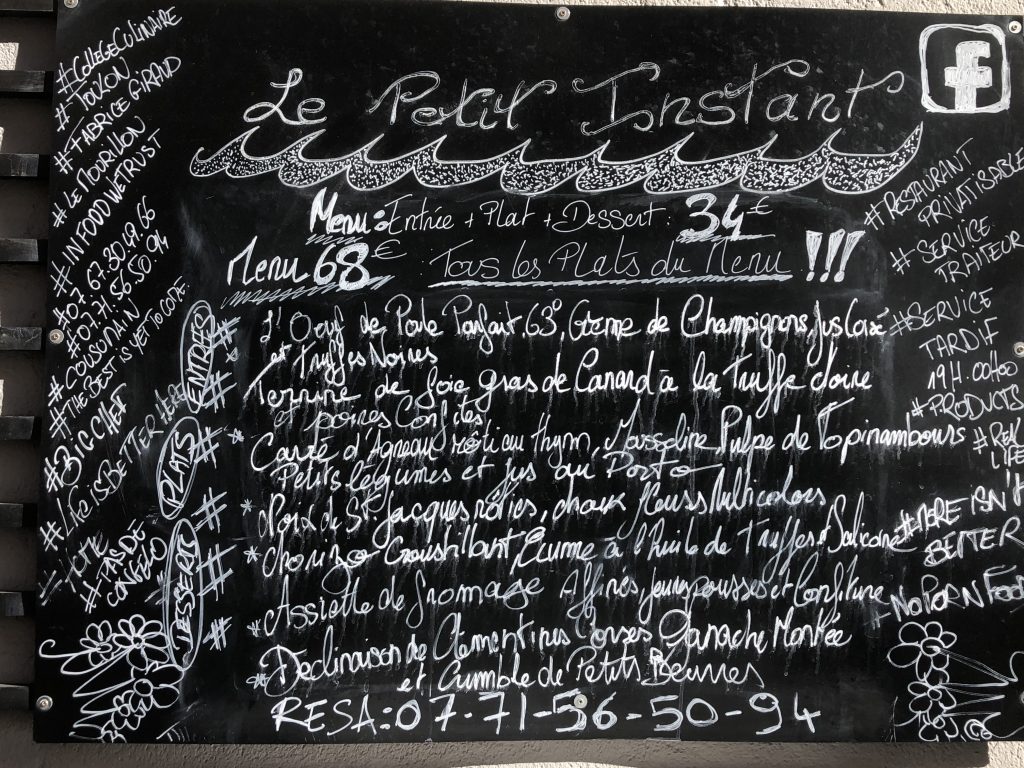 #COLLEGECULINAIRE
#TOULON
#FABRICE GIRAUD
#LE MOURILLON
#INFOODWETRUST
#07.67.30.49.66
#07.71.56.50.94
#COUSCMAIN
#THE BEST IS YET TO COME
#BIGCHEF
#LIFE IS BETTER HERE
#HOME
#PAS DE
CONGELO
Le Petit Instant
f
Menu: Entrée + Plat + Dessert: 34€
Menu 68€ : Tous les Plats du Menu !!!
ENTRÉES
# L'Oeuf de Poule Parfait 63°, Crème de Champignons, Jus Corsé
et Truffes Noires
# Terrine de foie gras de Canard à la Truffe
et poires Confites
PLATS
* Carré d'Agneau rôti au thym, Mousseline Pulpe de Topinambours
Petits légumes et jus au Porto
* Noix de St Jacques rôties, choux fleurs Multicolores
* chorizo Croustillant Ecume à l'huile de Truffes Salicorne
DESSERT
* Assiette de fromage Affinés, jeunes pousses et Confiture
* Declinaison de Clémentines Corses Ganache Montée
et Crumble de Petits Beurres
RESA: 07-71-56-50-94
#RESTAURANT
PRIVATISABLE
#SERVICE
TRAITEUR
#SERVICE
TARDIF
19H.00H00
#PRODUCTS
#REAL
LIFE
#MORE ISN'T
BETTER
#NOPORNFOOD